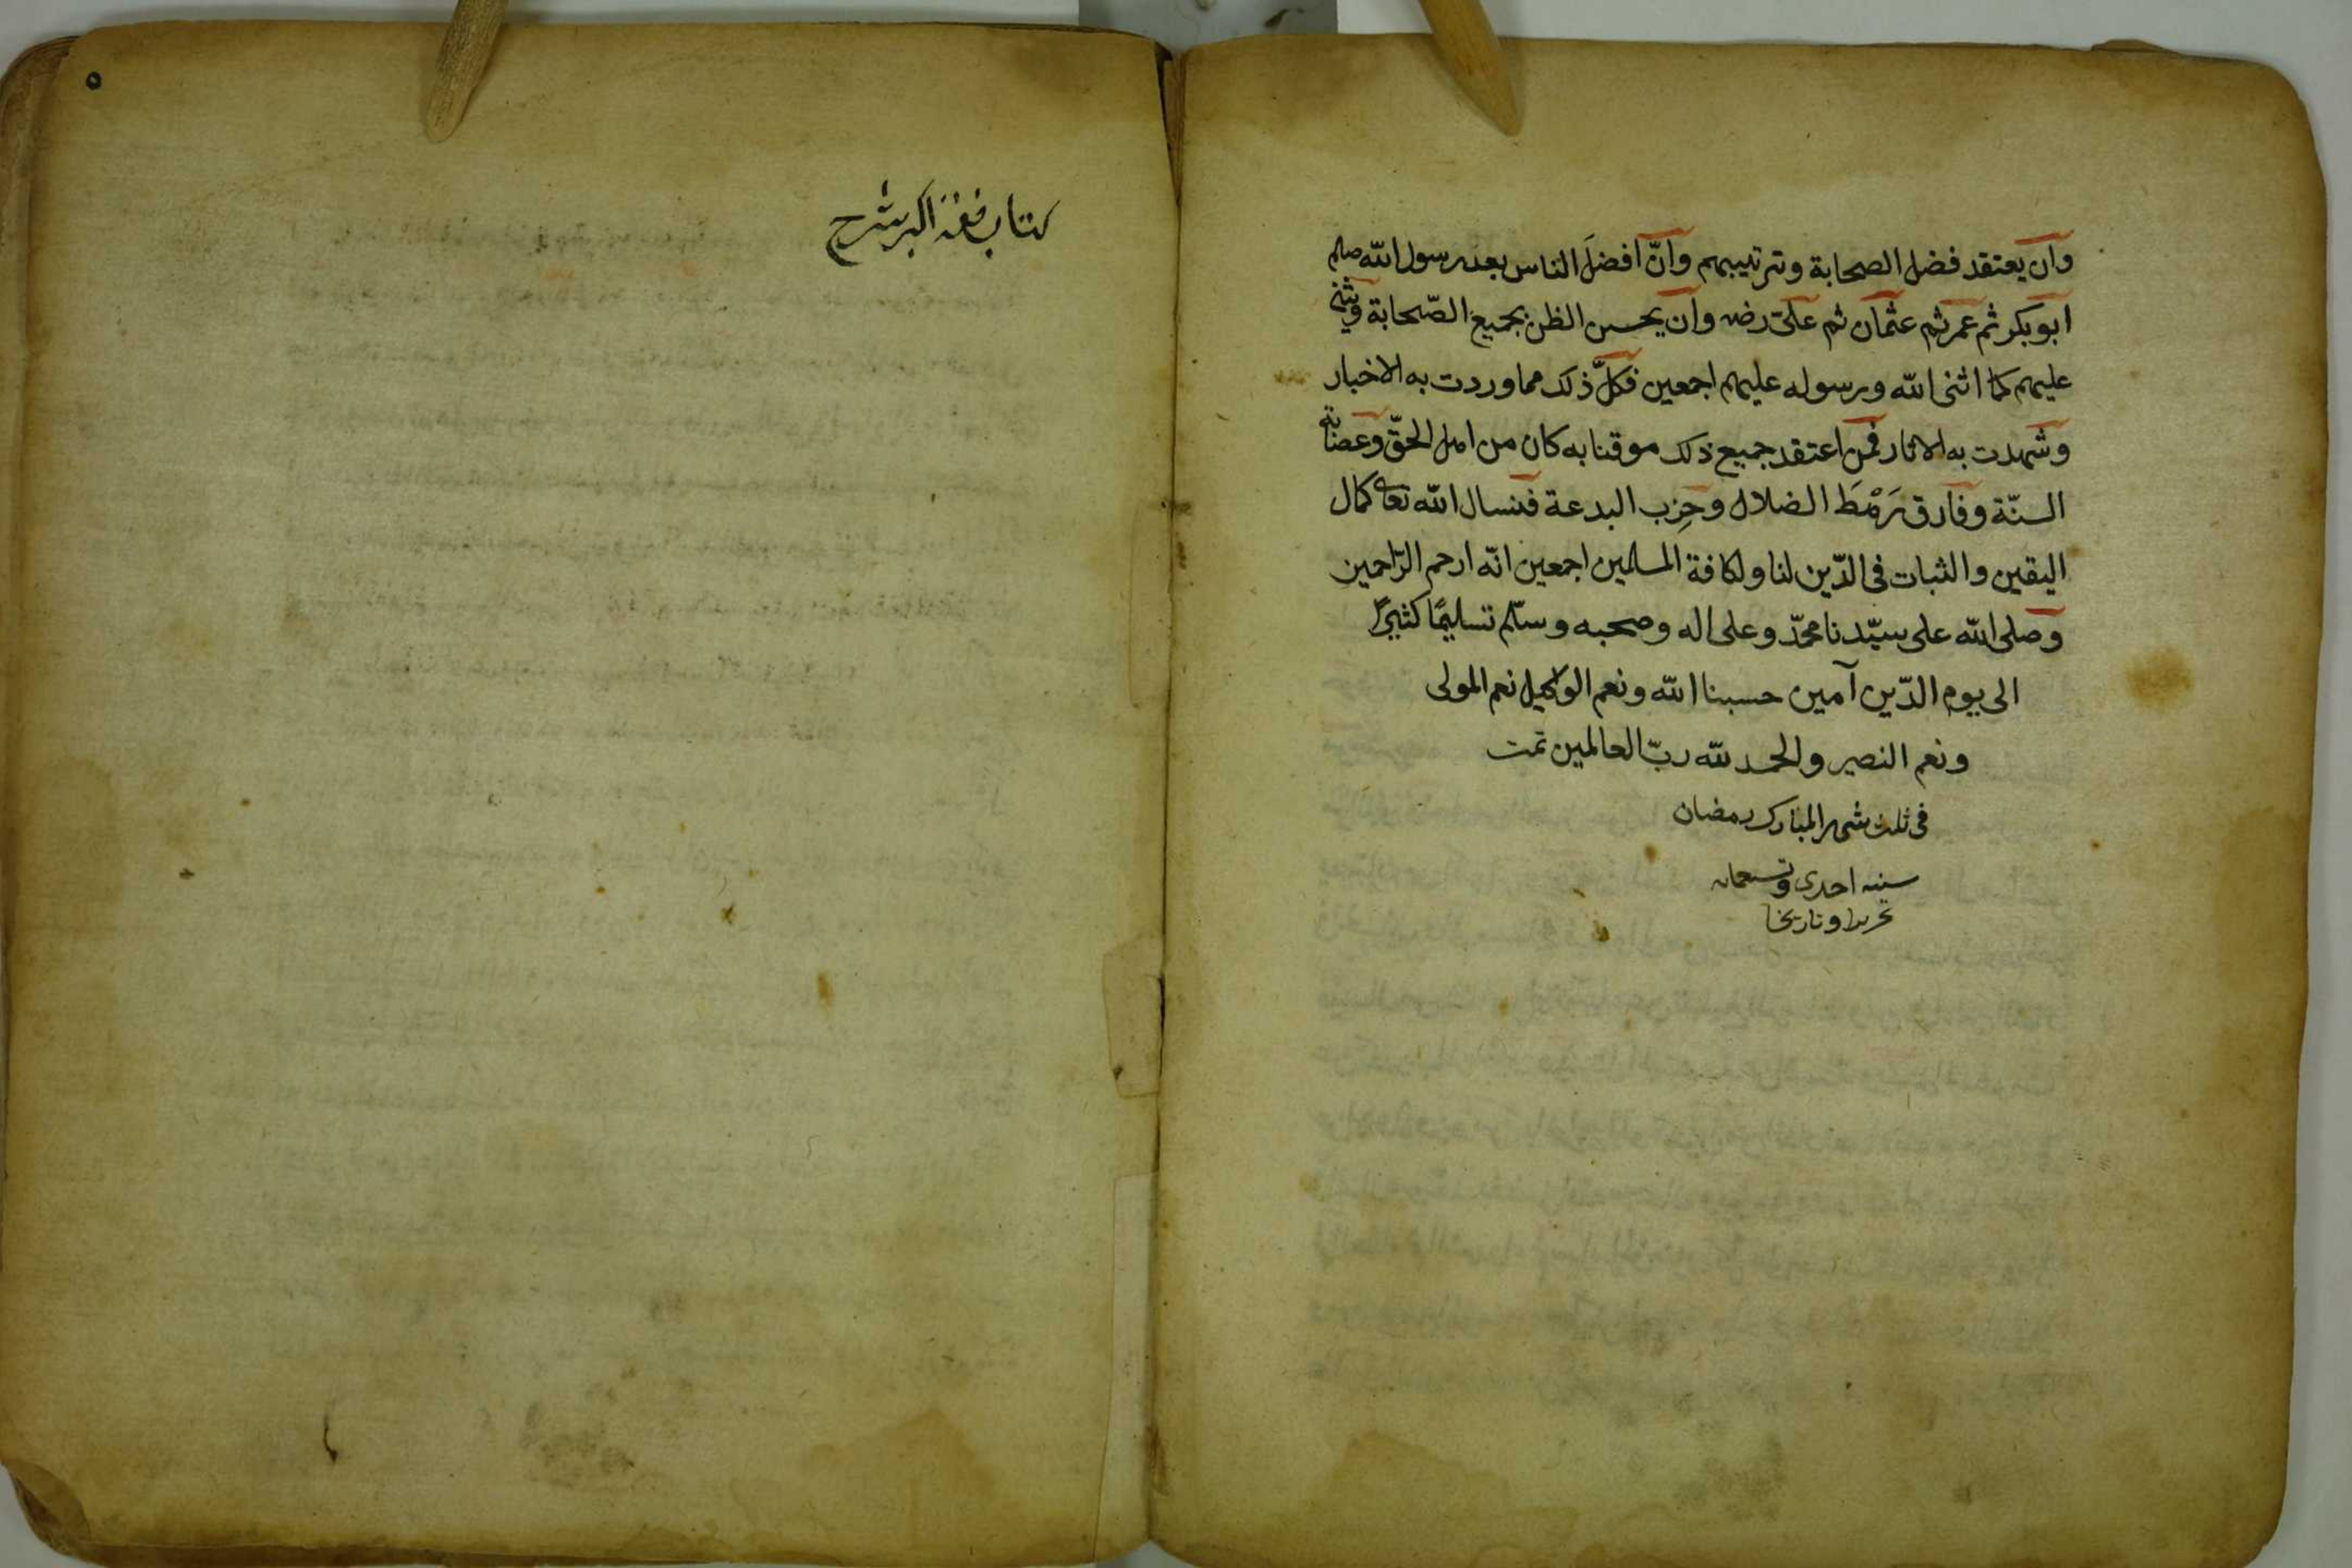 وان يعتقد فضل الصحابة وترتيبهم وانّ افضلَ الناس بعد رسول الله صلم
ابو بكر ثم عمر ثم عثمان ثم علىّ رضه وان يحسن الظن بجميع الصّحابة ويثنى
عليهم كما اثنى الله ورسوله عليهم اجمعين فكلّ ذلك مما وردت به الاخبار
وشهدت به الاثار فمن اعتقد جميع ذلك موقنا به كان من اهل الحقّ وعصابة
السنّة وفارق رَهْطَ الضلال وحِزب البدعة فنسال الله تعالى كمال
اليقين والثبات فى الدّين لنا ولكافة المسلمين اجمعين انّه ارحم الرّاحمين
وصلى الله على سيّدنا محمّد وعلى اله وصحبه وسلّم تسليمًا كثيرًا
الى يوم الدّين آمين حسبنا الله ونعم الوكيل نعم المولى
ونعم النصير والحمد لله ربّ العالمين تمت
فى ثلث شهر المبارك رمضان
سنه احدى وتسعمايه
تحريرا وتاريخا
٥
كتاب فقه اكبر شرح